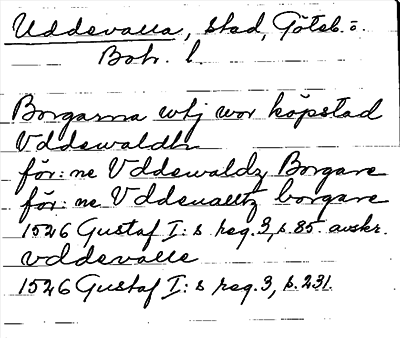 Uddevalla, stad, Göteb. o.
Boh. l.
Borgarna wtj wor köpstad
Vddewaldh
för: ne Vddewaldz Borgare
för: ne Vddeualltz borgare
1526 Gustaf I: s reg. 3, s. 85. avskr.
vddevalle
1526 Gustaf I: s reg. 3, s. 231.